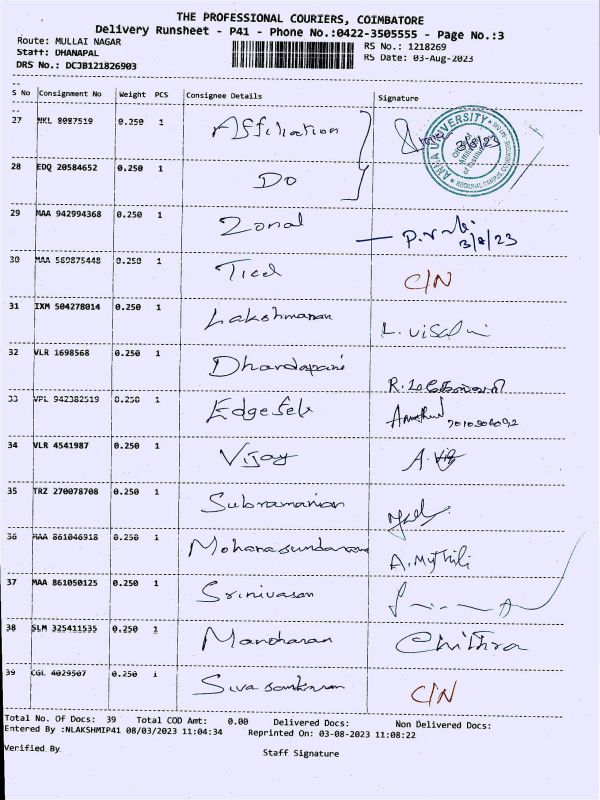 THE PROFESSIONAL COURIERS, COIMBATORE
Delivery Runsheet - P41 - Phone No.:0422-3505555 - Page No.:3
Route: MULLAI NAGAR RS No.: 1218269
Staff: DHANAPAL RS Date: 03-Aug-2023
DRS No.: DCJB121826903
S No Consignment No Weight PCS Consignee Details Signature
27 NKL 8087519 0.250 1 Affiliation 3/8/23
28 EDQ 20584652 0.250 1 Do
29 MAA 942994368 0.250 1 Zonal 3/8/23
30 MAA 569875448 0.250 1 C/N
31 IXM 504278014 0.250 1 Lakshmanan L. Visal
32 VLR 1698568 0.250 1 Dhandapani
33 VPL 942382519 0.250 1 Edgefelx
34 VLR 4541987 0.250 1 Vijay
35 TRZ 270078708 0.250 1 Subramanian
36 MAA 861046918 0.250 1 Mohanasundaram A. Mythili
37 MAA 861050125 0.250 1 Srinivasan
38 SLM 325411535 0.250 1 Manoharan Chithra
39 CGL 4029507 0.250 1 Sivasankaran C/N
Total No. Of Docs: 39 Total COD Amt: 0.00 Delivered Docs: Non Delivered Docs:
Entered By :NLAKSHMIP41 08/03/2023 11:04:34 Reprinted On: 03-08-2023 11:08:22
Verified By Staff Signature